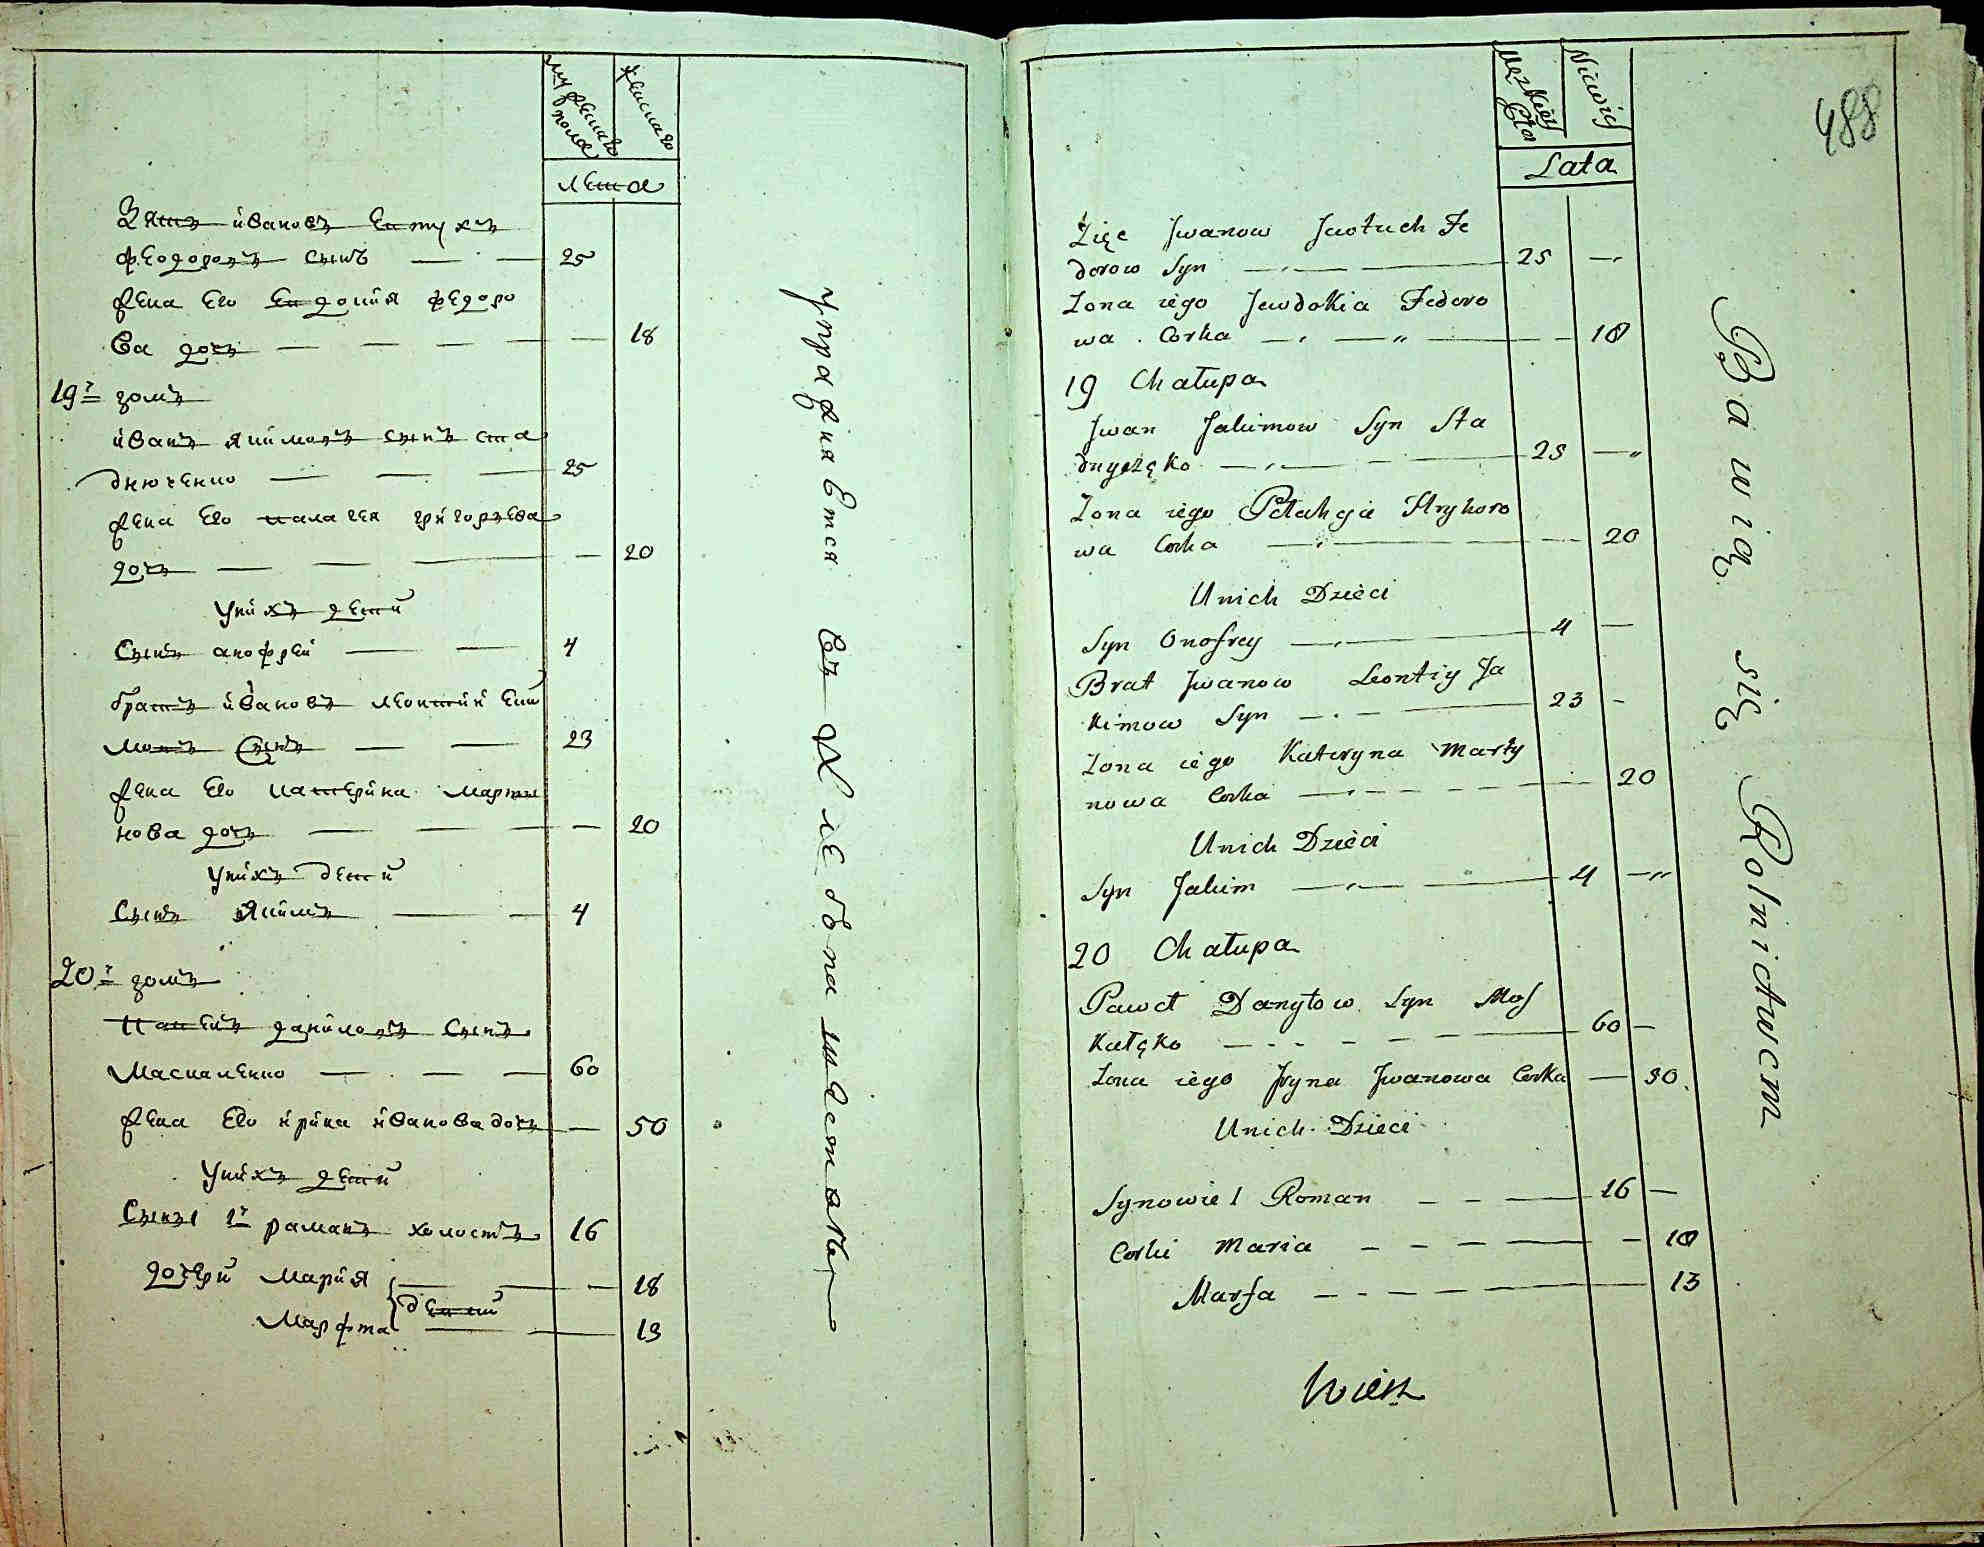 мужеска
пола
женска
лета
Зять ивановъ Евтухъ
федоровъ сынъ — — 25
жена Его Евдокия федоро
ва дочь — — — — 18
19й домъ
иванъ якимовъ сынъ ста
днюченко — — — 25
жена Его палагея григорьева
дочь — — — 20
у них дети
Сынъ анофрей — — 4
братъ ивановъ леонтий яки
мовъ Сынъ — — 23
жена Его катерина марты
нова дочь — — — 20
у них дети
Сынъ Якимъ — — 4
20й домъ
павелъ даниловъ Сынъ
Маскаленко — — — 60
жена Его ирина иванова дочь — 50
у них дети
Сыны 1й раманъ холостъ 16
дочери Мария — — 18
девки
Марфта — — 13
упражняется въ Хлебопашестве
Męzkiey
Płci
Niewię
Lata
488
Zięc Jwanow Jewtuch Fe
dorow Syn — — 25 —
Zona iego Jewdokia Fedoro
wa Corka — — — 18
19 Chałupa
Jwan Jakimow Syn Sta
dnyczęko — — 25 —
Zona iego Pełahgia Hryhoro
wa Corka — — 20
Unich Dzieci
Syn Onofrey — 4 —
Brat Jwanow Leontiy Ja
kimow Syn — — 23 -
Zona iego Kateryna Marty
nowa Corka — — — 20
Unich Dzieci
Syn Jakim — — 4 —
20 Chałupa
Paweł Danyłow Syn Mos
kalęko — — — 60 —
Zona iego Jryna Jwanowa Corka — 50
Unich Dzieci
Synowie 1 Roman — — — 16 —
Corki Maria — — — — 18
Marfa — — — — 13
Wieś
Bawią się Rolnictwem